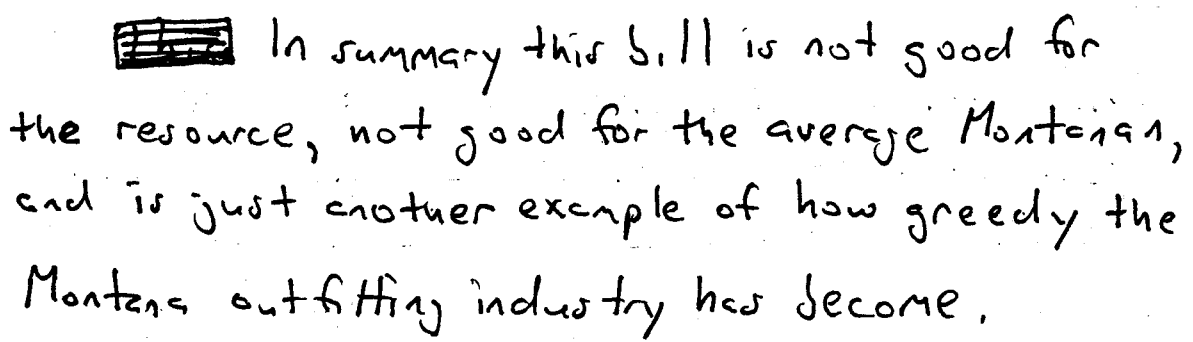 In summary this bill is not good for
the resource, not good for the average Montanan,
and is just another example of how greedy the
Montana outfitting industry has become.